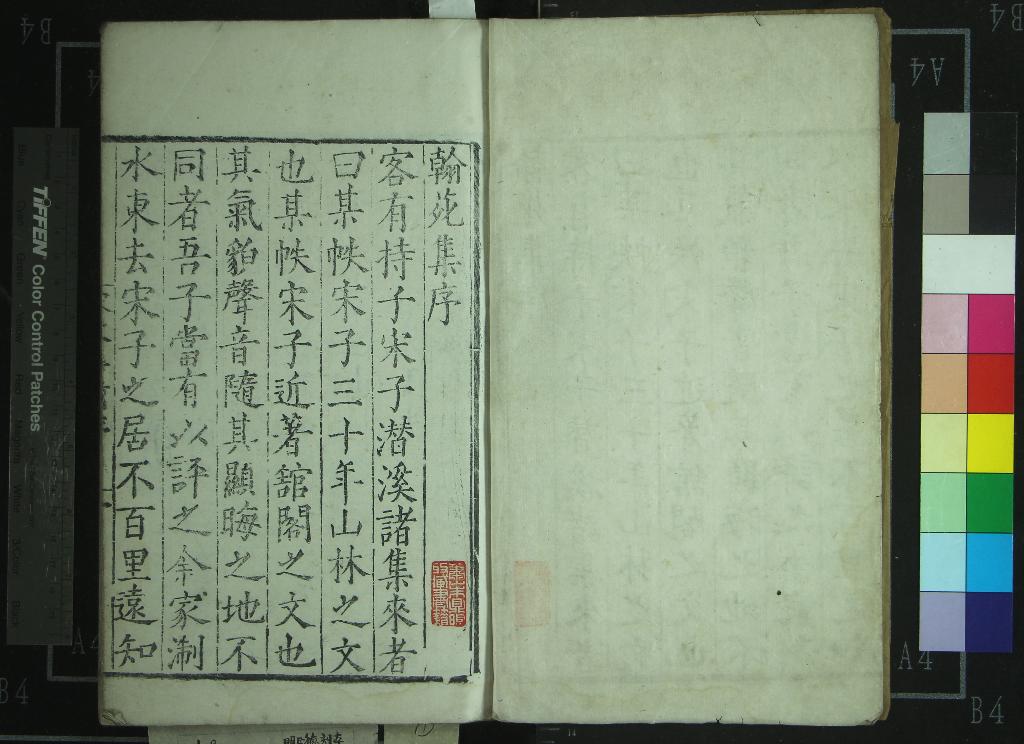 翰苑集序
客有持子宋子潜溪諸集來者
曰某帙宋子三十年山林之文
也某帙宋子近著舘閣之文也
其氣貌聲音隨其顯晦之地不
同者吾子當有以評之余家浙
水東去宋子之居不百里遠知
TIFFEN Color Control Patches
A4
B4
A4
B4